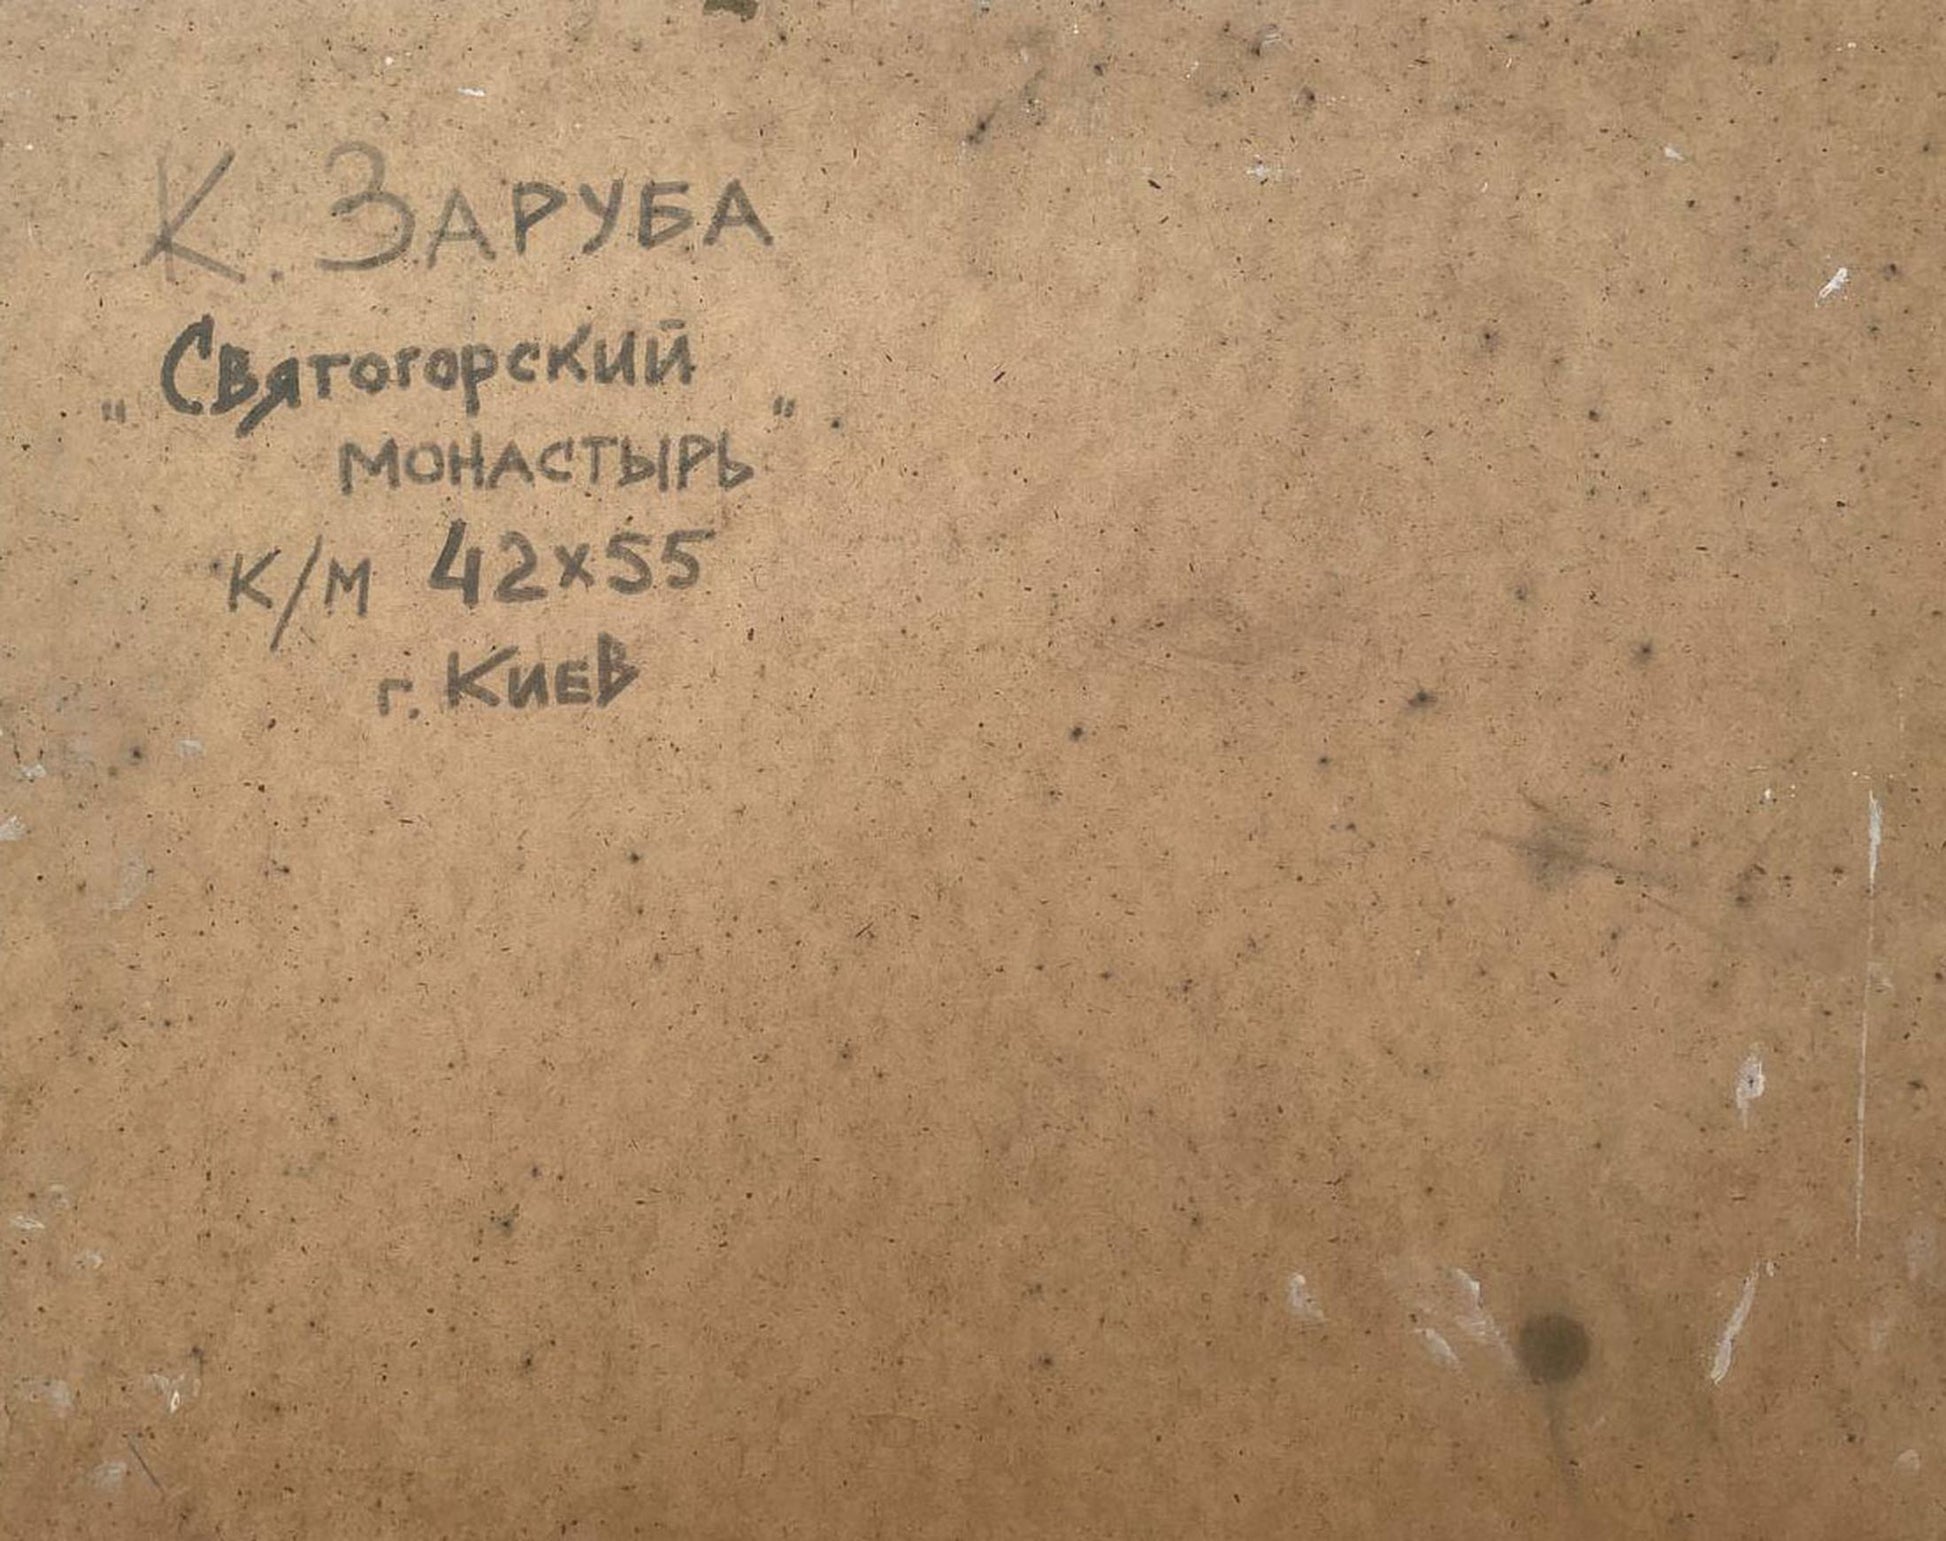 К. ЗАРУБА
„ Святогорский
МОНАСТЫРЬ "
К/М 42х55
г. КИЕВ